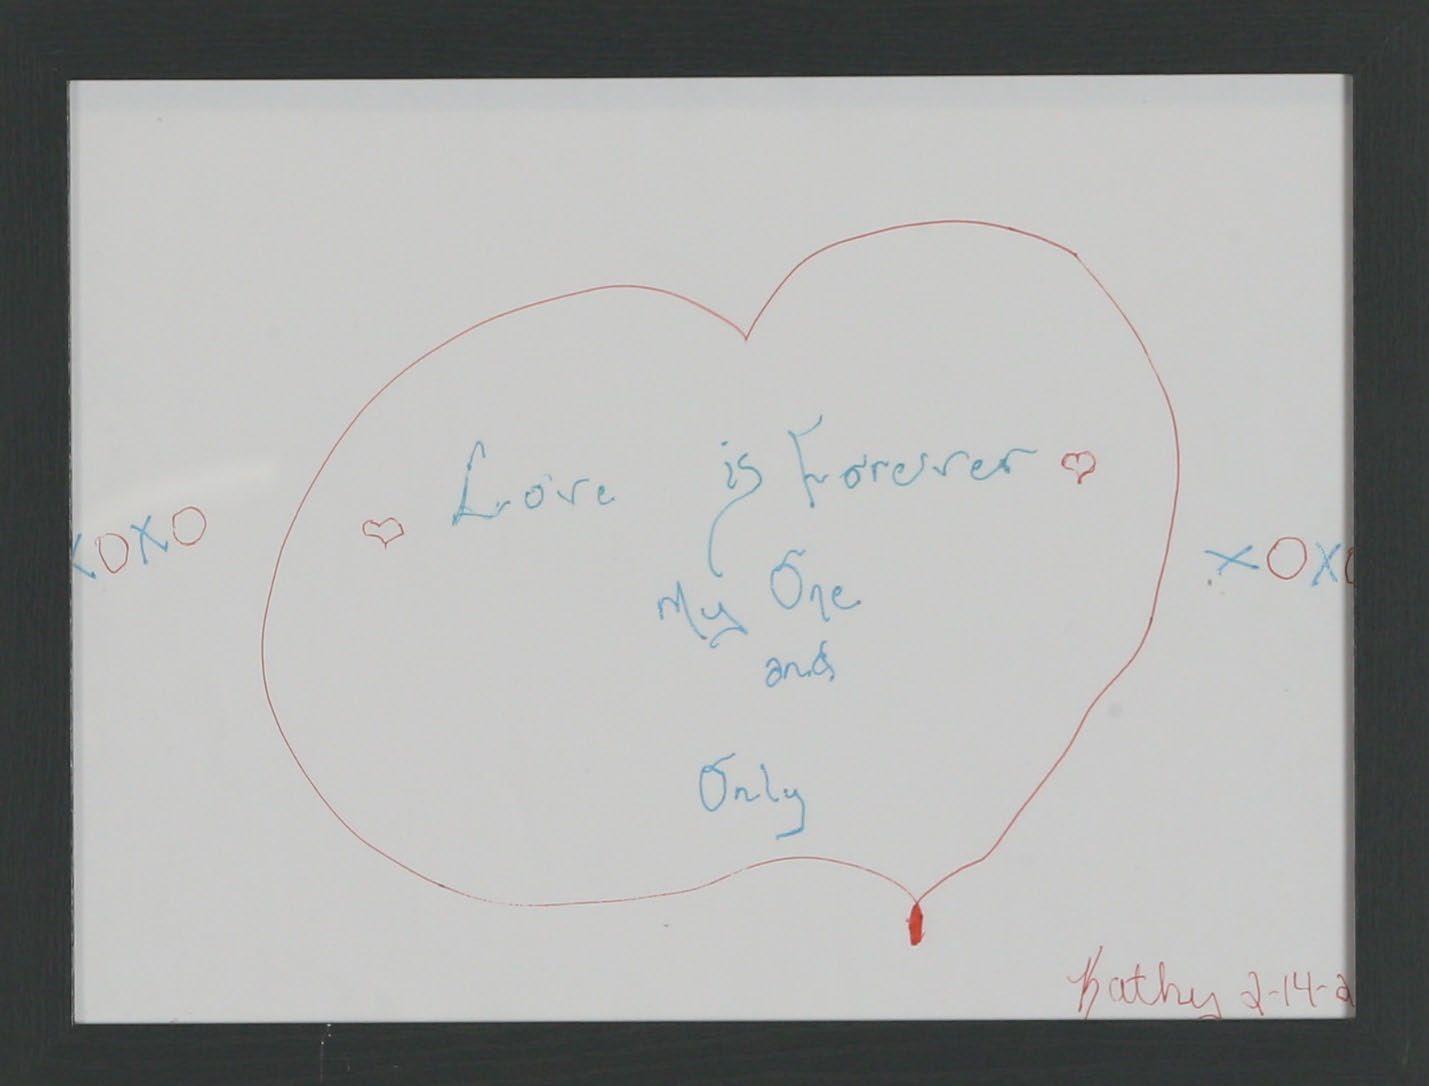 Love is Forever
XOXO
XOXO
My One
and
Only
Kathy 2-14-2